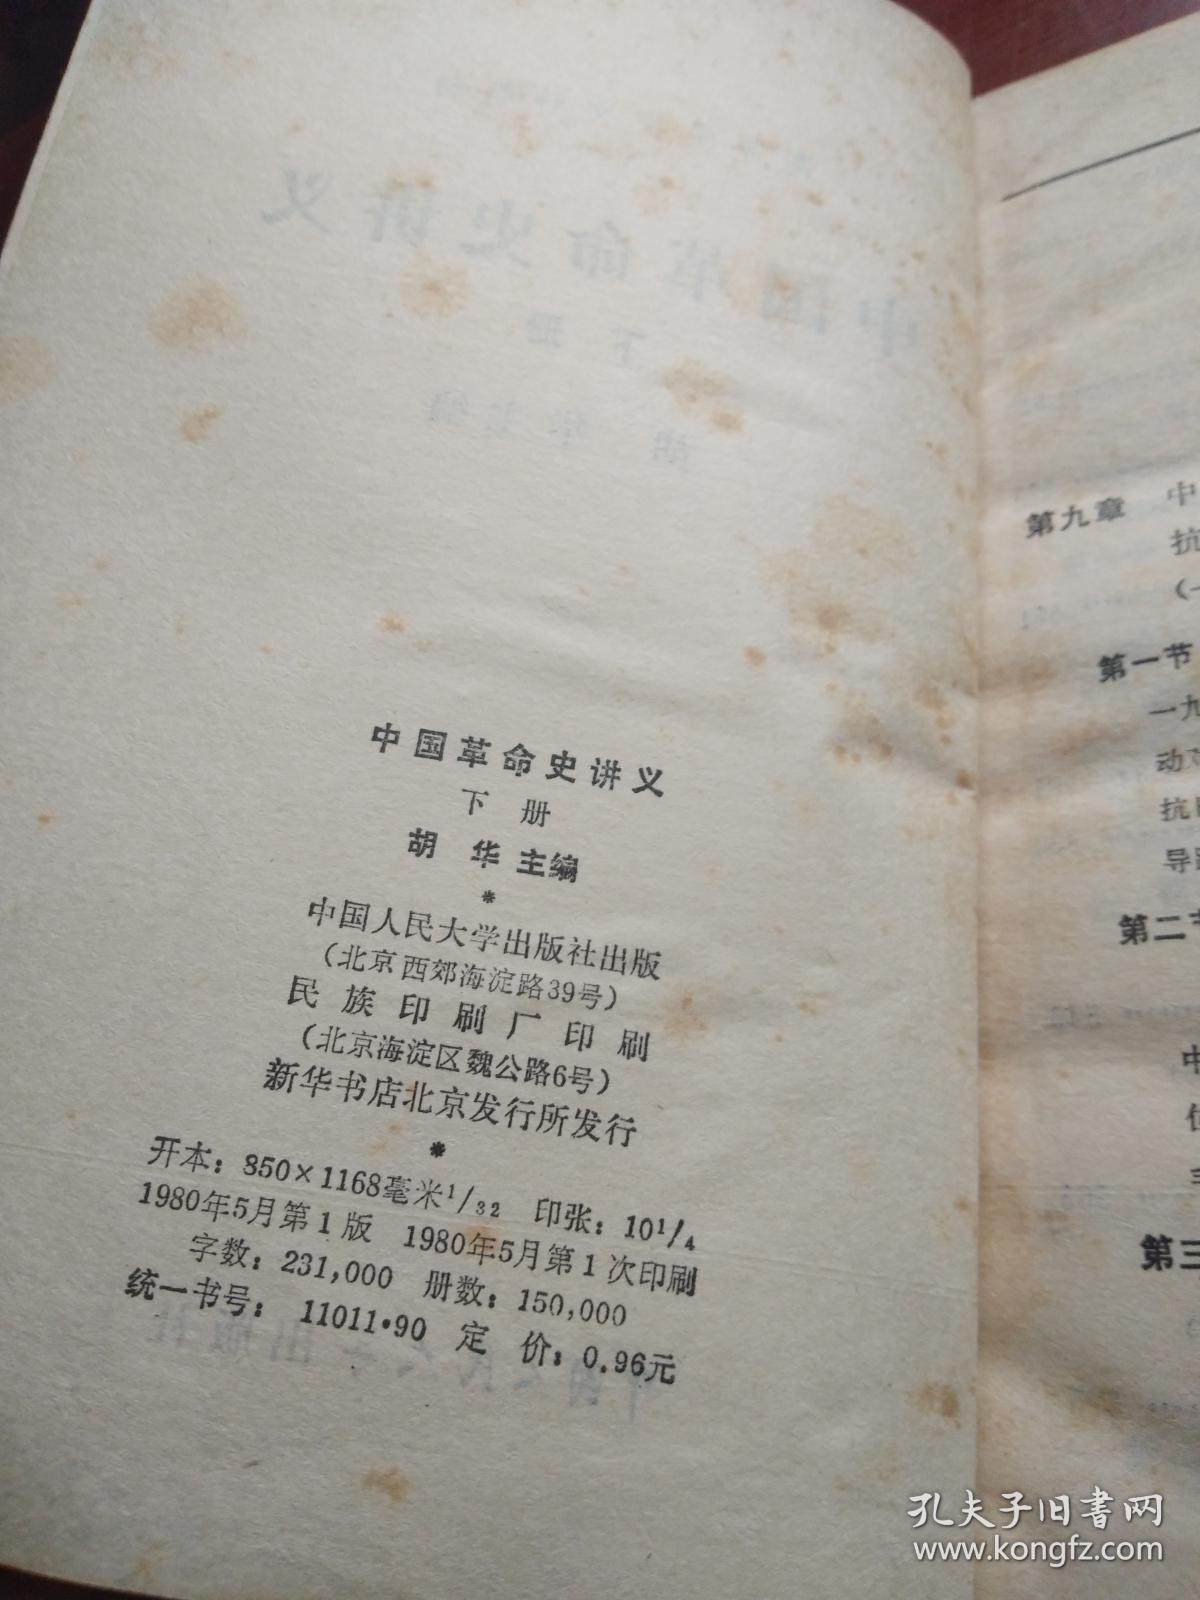 中国革命史讲义
下册
胡华主编
*
中国人民大学出版社出版
(北京西郊海淀路39号)
民族印刷厂印刷
(北京海淀区魏公路6号)
新华书店北京发行所发行
*
开本：850×1168毫米1/32 印张：10 1/4
1980年5月第1版 1980年5月第1次印刷
字数：231,000 册数：150,000
统一书号：11011·90 定价：0.96元
第九章 中
抗
(一
第一节
一九
动
抗
导
第二节
中
第三
孔夫子旧书网
www.kongfz.com